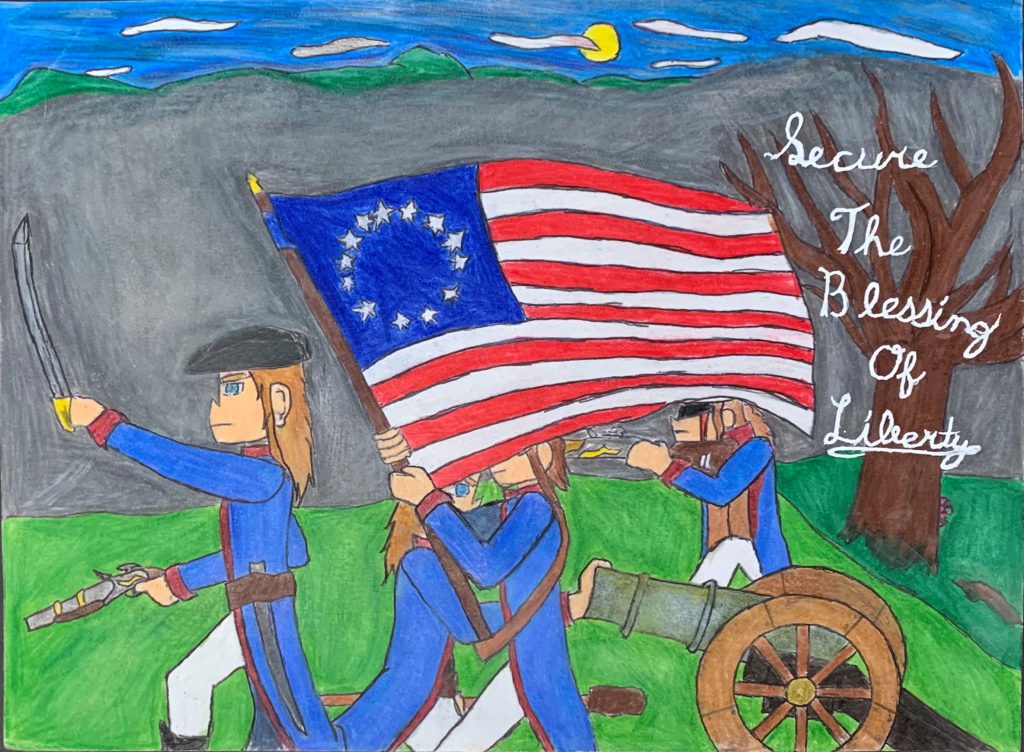 Secure
The
Blessing
Of
Liberty